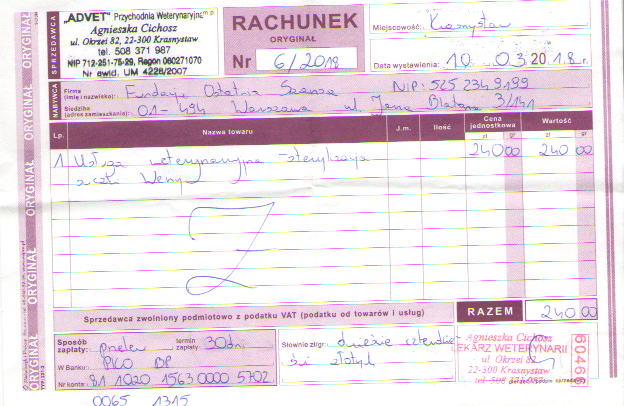 ORYGINAŁ ORYGINAŁ ORYGINAŁ ORYGINAŁ
SPRZEDAWCA
„ADVET" Przychodnia Weterynaryjna
Agnieszka Cichosz
ul. Okrzei 82, 22-300 Krasnystaw
tel. 508 371 987
NIP 712-251-75-29, Regon 060271070
Nr ewid. UM 4228/2007
RACHUNEK
ORYGINAŁ
Nr 6/2018
Miejscowość: Krasnystaw
Data wystawienia: 10 03 2018 r.
NABYWCA
Firma (imię i nazwisko): Fundacja Ostatnia Szansa NIP: 525 234 9199
Siedziba (adres zamieszkania): 01-494 Warszawa ul. Jana Blatona 3/141
Lp. Nazwa towaru J.m. Ilość Cena jednostkowa Wartość
zł gr zł gr
1 Usługa weterynaryjna - sterylizacja 240 00 240 00
suczki
Sprzedawca zwolniony podmiotowo z podatku VAT (podatku od towarów i usług)
RAZEM 240 00
Sposób zapłaty: przelew termin zapłaty: 30 dni
W Banku: PKO BP
Nr konta: 81 1020 1563 0000 5702
0065 1315
Słownie zł/gr: dwieście czterdzie-
ści złotych
Agnieszka Cichosz
LEKARZ WETERYNARII
ul. Okrzei 82
22-300 Krasnystaw
tel. 508 371 987
60466